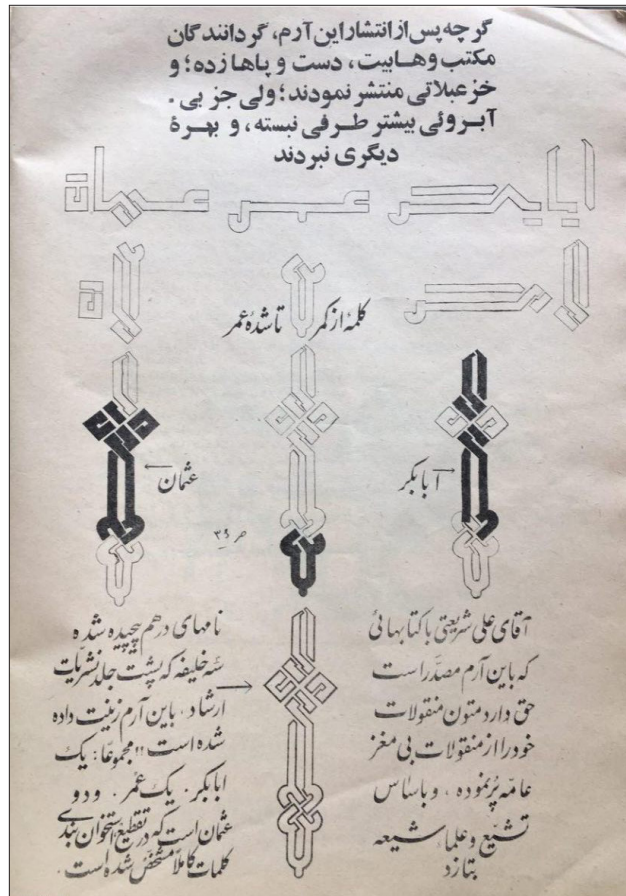 گرچه پس از انتشار این آرم، گردانندگان
مکتب وهابیت، دست و پاها زده؛ و
خزعبلاتی منتشر نمودند؛ ولی جز بی.
آبروئی بیشتر طرفی نبسته، و بهرهٔ
دیگری نبردند
ابابکر عمر عثمان
کلمهٔ از کمر تا شدهٔ عمر
ابابکر
عثمان
آقای علی شریعتی با کتابهائی
که باین آرم مصدّر است
حق دارد متون منقولات
خود را از منقولات بی مغز
عامّه پُر نموده، و باساس
تشیّع و علماء شیعه
بتازد
نامهای درهم پیچیده شده
سه خلیفه که پشت جلد نشریّات
ارشاد، باین آرم زینت داده
شده است!! مجموعاً: یک
ابابکر. یک عُمر. و دو
عثمان است که در تقطیع استخوان بندی
کلمات کاملاً مشخّص شده است.